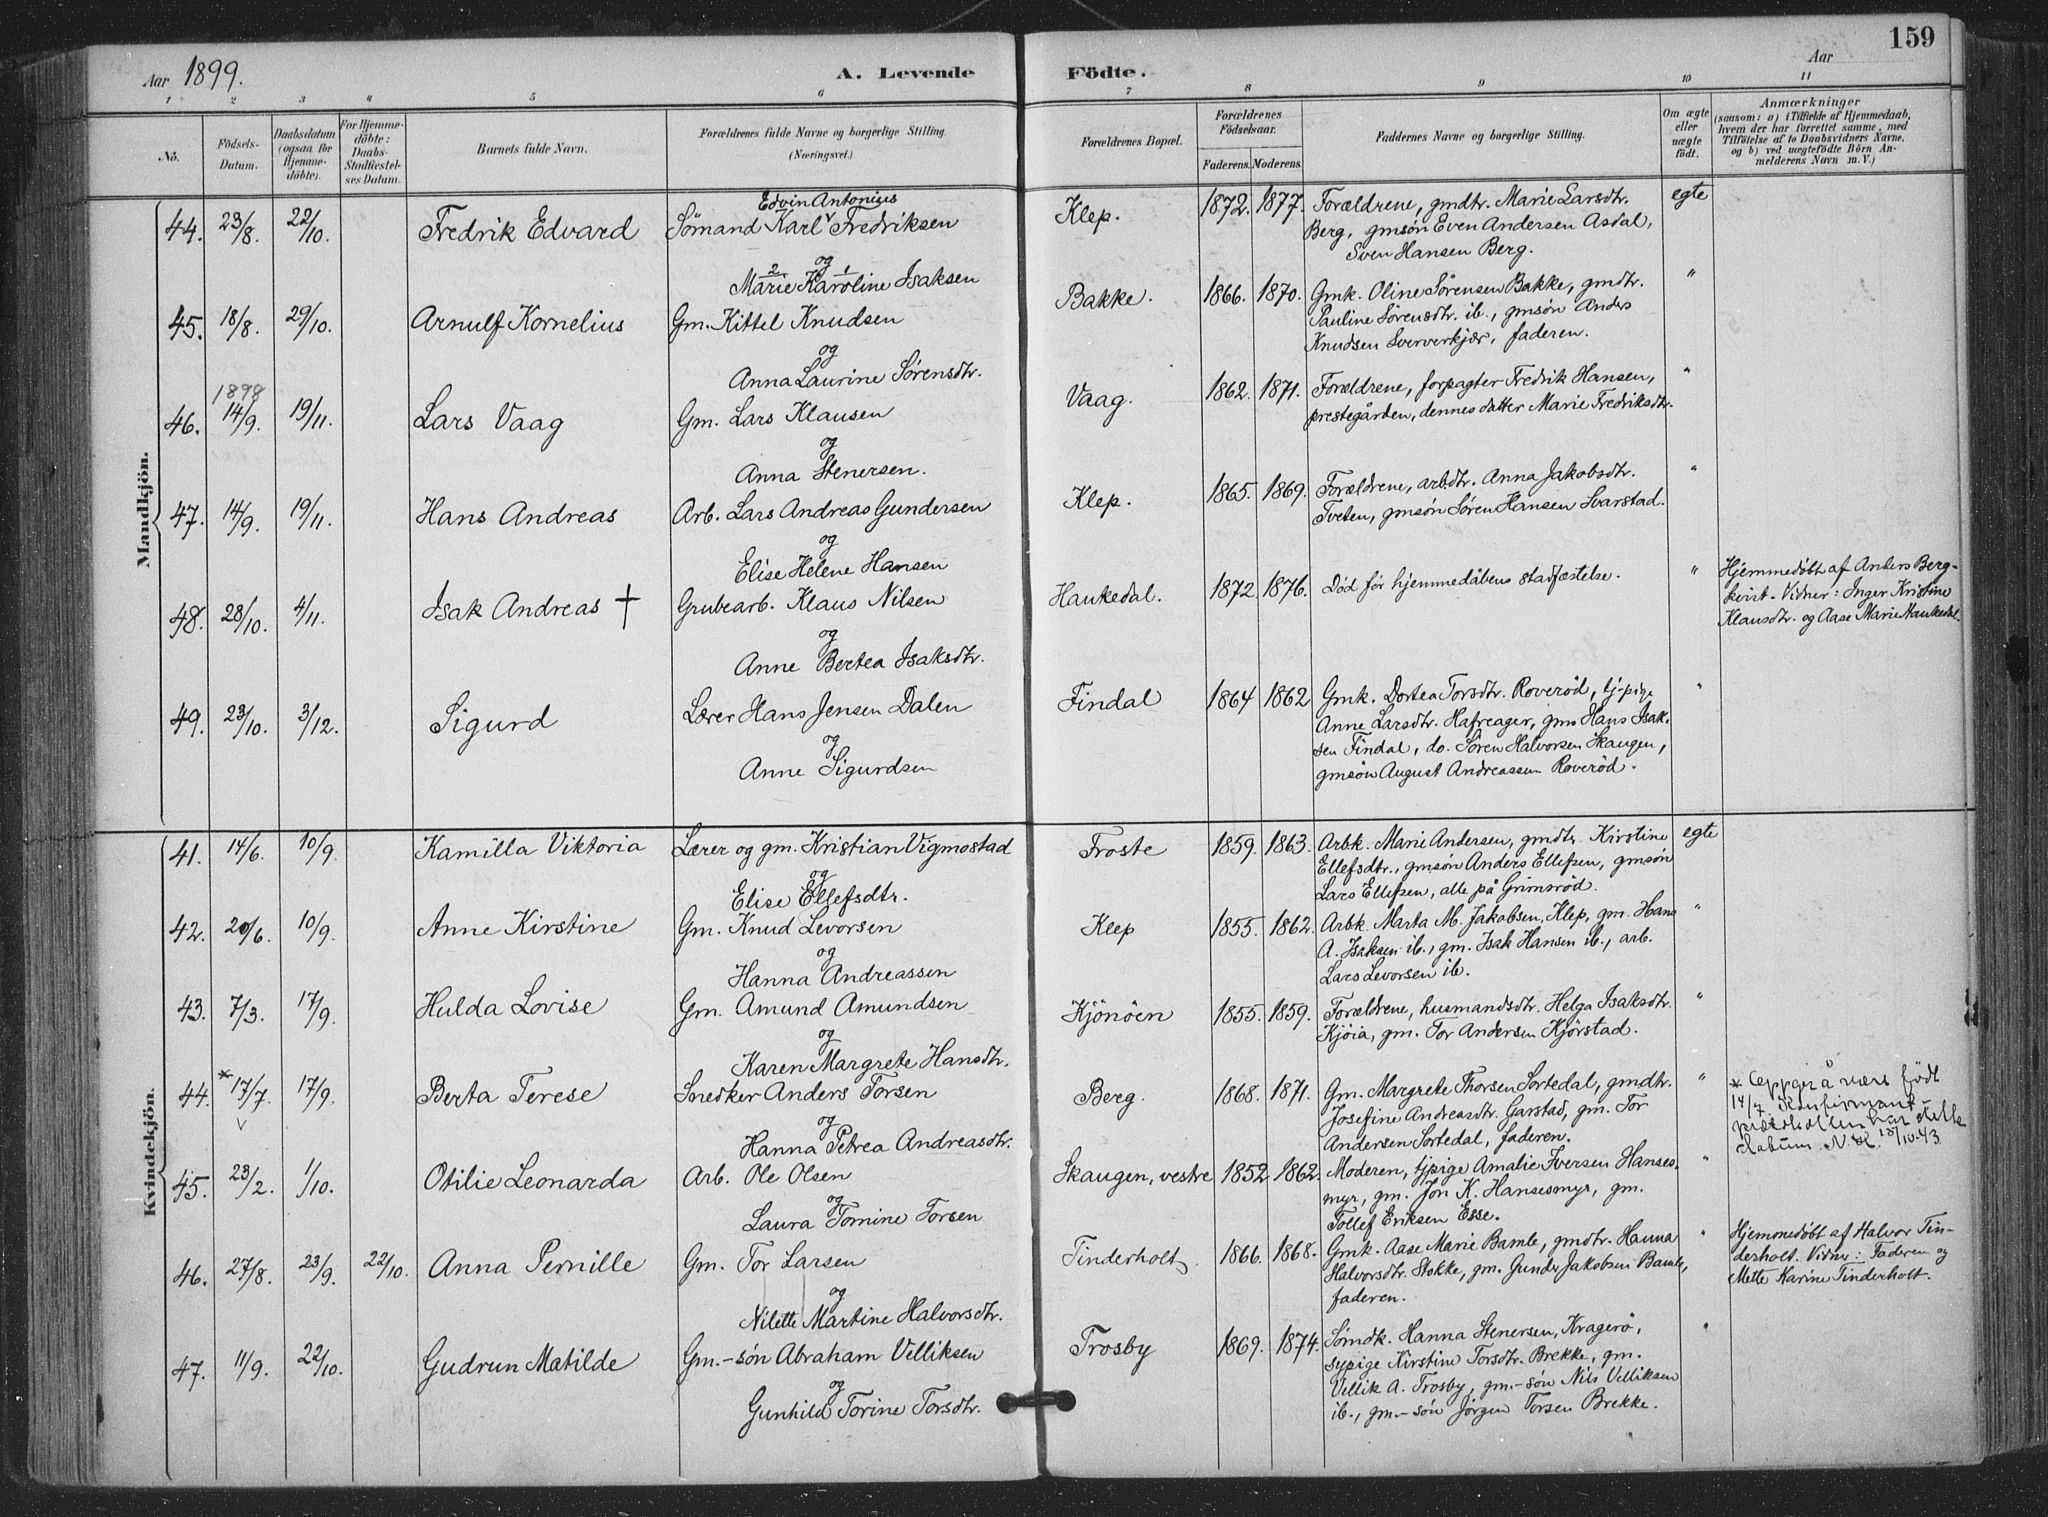 159
Aar 1899.
A. Levende Födte.
Aar
1 2 3 4 5 6 7 8 9 10 11
No.
Födsels-Datum.
Daabsdatum (ogsaa for Hjemmedöbte).
For Hjemmedöbte: Daabs-Stadfæstelses Datum.
Barnets fulde Navn.
Forældrenes fulde Navne og borgerlige Stilling.
(Næringsvei.)
Forældrenes Bopæl.
Forældrenes Födselsaar.
Faderens. Moderens.
Faddernes Navne og borgerlige Stilling.
Om ægte eller uægte födt.
Anmærkninger
(saasom: a) i Tilfælde af Hjemmedaab, hvem der har forrettet samme, med Tilföielse af to Daabsvidners Navne, og b) ved uægtefödte Börn Anmelderens Navn m. V.)
Mandkjön.
44. 23/8. 22/10. Fredrik Edvard Sömand Karl Edvin Antonius Fredriksen
og
Marie Karoline Isaksen
2 1
Klep. 1872. 1877. Forældrene, gmdtr. Marie Larsdtr.
Berg, gmsön Even Andersen Asdal,
Sven Hansen Berg.
egte
45. 18/8. 29/10. Arnulf Kornelius Gm. Kittel Knudsen
og
Anna Laurine Sørensdtr.
Bakke. 1866. 1870. Gmk. Oline Sørensen Bakke, gmdtr.
Pauline Sørensdtr. ib., gmsön Anders
Knudsen Sververkjær, faderen.
"
1898
46. 14/9. 19/11. Lars Vaag Gm. Lars Klausen
og
Anna Stenersen.
Vaag. 1862. 1871. Forældrene, forpagter Fredrik Hansen,
prestegården, dennes datter Marie Fredriksdtr.
"
47. 14/9. 19/11. Hans Andreas Arb. Lars Andreas Gundersen
og
Elise Helene Hansen
Klep. 1865. 1869. Forældrene, arbdtr. Anna Jakobsdtr.
Tveten, gmsön Søren Hansen Svarstad.
"
48. 28/10. 4/11. Isak Andreas † Grubearb. Klaus Nilsen
og
Anne Bertea Isaksdtr.
Haukedal. 1872. 1876. Död før hjemmedåbens stadfæstelse.
"
Hjemmedöbt af Anders Berg-
kvist. Vidner: Inger Kristine
Klausdtr. og Aase Marie Haukedal.
49. 23/10. 3/12. Sigurd Lærer Hans Jensen Dalen
og
Anne Sigurdsen
Findal 1864 1862 Gmk. Dortea Torsdtr. Roveröd, tj-pige
Anne Larsdtr. Hafreager, gms Hans Isak-
sen Findal, do. Sören Halvorsen Skaugen,
gmsön August Andreassen Roveröd.
"
Kvindekjön.
41. 14/6. 10/9. Kamilla Viktoria Lærer og gm. Kristian Vigmostad
og
Elise Ellefsdtr.
Froste 1859. 1863. Arbk. Marie Andersen, gmdtr. Kirstine
Ellefsdtr., gmsön Anders Ellefsen, gmsön
Lars Ellefsen, alle på Grimsröd.
egte
42. 20/6. 10/9. Anne Kirstine Gm. Knud Levorsen
og
Hanna Andreassen
Klep 1855. 1862. Arbk. Marta M. Jakobsen, Klep, gm. Hans
A. Isaksen ib., gm. Isak Hansen ib., arb.
Lars Levorsen ib.
"
43. 7/3. 17/9. Hulda Lovise Gm. Amund Amundsen
og
Karen Margrete Hansdtr.
Kjönöen 1855. 1859. Forældrene, husmandsdtr. Helga Isaksdtr.
Kjöia, gm. Tor Andersen Kjörstad.
"
44. * 17/7. 17/9. Berta Terese Snedker Anders Torsen
og
Hanna Petrea Andreasdtr.
Berg. 1868. 1871. Gm. Margrete Thorsen Sortedal, gmdtr.
Josefine Andreasdtr. Garstad, gm. Tor
Andersen Sortedal, faderen.
"
* Oppgir å være född
14/7. Konfirmant-
protokollen har dette
datum. 15/10.43.
45. 23/2. 1/10. Otilie Leonarda Arb. Ole Olsen
og
Laura Tomine Torsen
Skaugen, vestre 1852 1862. Moderen, tjpige Amalie Iversen Hanses-
myr, gm. Jon K. Hansesmyr, gm.
Tollef Eriksen Esse.
"
46. 27/8. 23/9. 22/10. Anna Pernille Gm. Tor Larsen
og
Nilette Martine Halvorsdtr.
Tinderholt. 1866. 1868. Gmk. Aase Marie Bamle, gmdtr. Hanna
Halvorsdtr. Stokke, gm. Gunder Jakobsen Bamle,
faderen.
"
Hjemmedöbt af Halvor Tin-
derholt. Vidner: Faderen og
Mette Karine Tinderholt.
47. 11/9. 22/10. Gudrun Matilde Gm.-sön Abraham Velliksen
og
Gunhild Torine Torsdtr.
Trosby 1869. 1874. Sömdk. Hanna Stenersen, Kragerö,
sypige Kirstine Torsdtr. Brekke, gm.
Vellik A. Trosby, gm.-sön Nils Velliksen
ib., gm.-sön Jörgen Torsen Brekke.
"